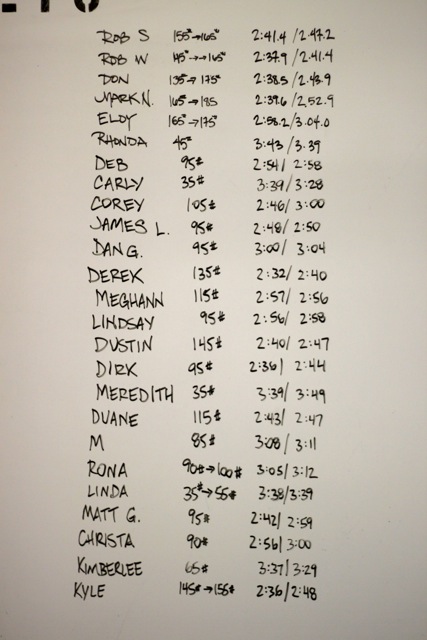 ROB S 155#→165# 2:41.4 / 2:47.2
ROB W 145#→165# 2:37.9 / 2:41.4
DON 135→ 175# 2:38.5 / 2:43.9
MARK N. 165#→185 2:39.6 / 2,52.9
ELOY 165#→175# 2:58.2 / 3.04.0
RHONDA 45# 3:43 / 3.39
DEB 95# 2:54 / 2:58
CARLY 35# 3:39 / 3:28
COREY 105# 2:46 / 3:00
JAMES L. 95# 2:48 / 2:50
DAN G. 95# 3:00 / 3:04
DEREK 135# 2:32 / 2:40
MEGHANN 115# 2:57 / 2:56
LINDSAY 95# 2:56 / 2:58
DUSTIN 145# 2:40 / 2:47
DIRK 95# 2:36 / 2:44
MEREDITH 35# 3:39 / 3:49
DUANE 115# 2:43 / 2:47
M 85# 3:08 / 3:11
RONA 90#→100# 3:05 / 3:12
LINDA 35#→55# 3:38/3:39
MATT G. 95# 2:42 / 2:59
CHRISTA 90# 2:56 / 3:00
KIMBERLEE 65# 3:37 / 3:29
KYLE 145#→155# 2:36 / 2:48